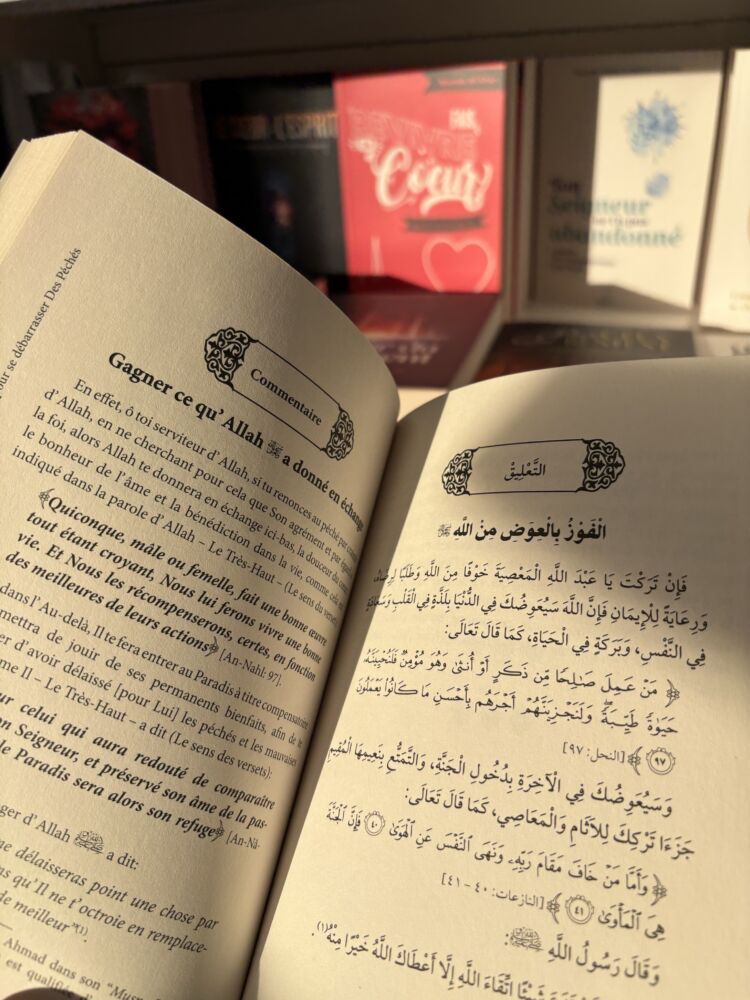 Fais
REVIVRE
ton
Cœur
Ton
Seigneur
abandonné
our se débarrasser Des Péchés
Commentaire
Gagner ce qu'Allah ﷻ a donné en échange
En effet, ô toi serviteur d'Allah, si tu renonces au péché par
d'Allah, en ne cherchant pour cela que Son agrément et par
la foi, alors Allah te donnera en échange ici-bas, la douceur du
le bonheur de l'âme et la bénédiction dans la vie, comme cela
indiqué dans la parole d'Allah – Le Très-Haut – (Le sens du verset
﴾Quiconque, mâle ou femelle, fait une bonne œuvre
tout étant croyant, Nous lui ferons vivre une bonne
vie. Et Nous les récompenserons, certes, en fonction
des meilleures de leurs actions﴿ [An-Nahl: 97].
dans l'Au-delà, Il te fera entrer au Paradis à titre compensatoire
mettra de jouir de ses permanents bienfaits, afin de te
er d'avoir délaissé [pour Lui] les péchés et les mauvaises
me Il – Le Très-Haut – a dit (Le sens des versets):
ur celui qui aura redouté de comparaître
on Seigneur, et préservé son âme de la pas-
le Paradis sera alors son refuge﴿ [An-Nâ-
ger d'Allah ﷺ a dit:
ne délaisseras point une chose par
ns qu'Il ne t'octroie en remplace-
de meilleur"(1).
Ahmad dans son "Musn
est qualifié
التَّعْلِيقُ
الْفَوْزُ بِالْعِوَضِ مِنَ اللَّهِ ﷻ
فَإِنْ تَرَكْتَ يَا عَبْدَ اللَّهِ الْمَعْصِيَةَ خَوْفًا مِنَ اللَّهِ وَطَلَبًا لِرِضَاهُ،
وَرِعَايَةً لِلْإِيمَانِ فَإِنَّ اللَّهَ سَيُعَوِّضُكَ فِي الدُّنْيَا بِلَذَّةٍ فِي الْقَلْبِ وَسَعَادَةٍ
فِي النَّفْسِ، وَبَرَكَةٍ فِي الْحَيَاةِ، كَمَا قَالَ تَعَالَى:
﴿ مَنْ عَمِلَ صَـٰلِحًا مِّن ذَكَرٍ أَوْ أُنثَىٰ وَهُوَ مُؤْمِنٌ فَلَنُحْيِيَنَّهُۥ
حَيَوٰةً طَيِّبَةً ۖ وَلَنَجْزِيَنَّهُمْ أَجْرَهُم بِأَحْسَنِ مَا كَانُوا۟ يَعْمَلُونَ
٩٧ ﴾ [النحل: ٩٧]
وَسَيُعَوِّضُكَ فِي الْآخِرَةِ بِدُخُولِ الْجَنَّةِ، وَالتَّمَتُّعِ بِنَعِيمِهَا الْمُقِيمِ
جَزَاءَ تَرْكِكَ لِلْآثَامِ وَالْمَعَاصِي، كَمَا قَالَ تَعَالَى:
﴿ وَأَمَّا مَنْ خَافَ مَقَامَ رَبِّهِۦ وَنَهَى ٱلنَّفْسَ عَنِ ٱلْهَوَىٰ ٤٠ فَإِنَّ ٱلْجَنَّةَ
هِىَ ٱلْمَأْوَىٰ ٤١ ﴾ [النازعات: ٤٠ – ٤١]
وَقَالَ رَسُولُ اللَّهِ ﷺ:
شَيْئًا اتِّقَاءَ اللَّهِ إِلَّا أَعْطَاكَ اللَّهُ خَيْرًا مِنْهُ(١).